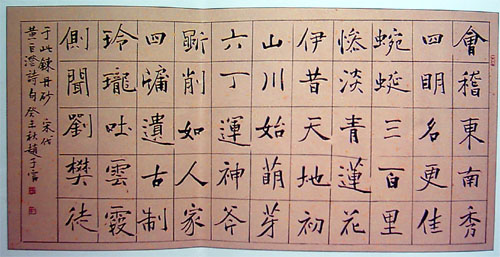 會稽東南秀
四明名更佳
蜿蜒三百里
慘淡青蓮花
伊昔天地初
山川始萌芽
六丁運神斧
斲削如人家
四牖遺古制
玲瓏吐雲霞
側聞劉樊徒
于此鍊丹砂 宋代
黃 澄詩句 秋趙子